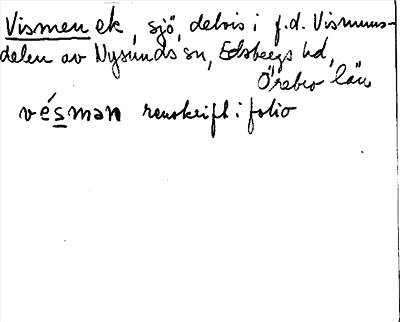 Vismen ek, sjö, delvis i f.d. Vismens-
delen av Nysunds sn, Edsbergs hd,
Örebro län
vésmən renskrift i folio